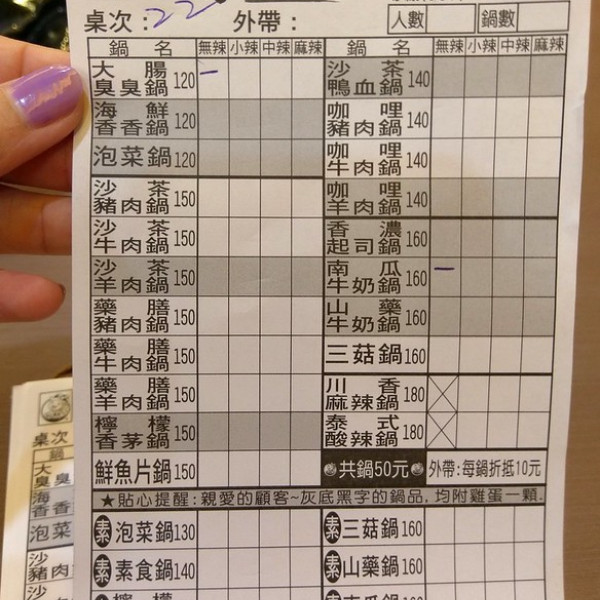 桌次：22 外帶： 人數 鍋數
鍋名 無辣 小辣 中辣 麻辣 鍋名 無辣 小辣 中辣 麻辣
大腸臭臭鍋 120 沙茶鴨血鍋 140
海鮮香香鍋 120 咖哩豬肉鍋 140
泡菜鍋 120 咖哩牛肉鍋 140
沙茶豬肉鍋 150 咖哩羊肉鍋 140
沙茶牛肉鍋 150 香濃起司鍋 160
沙茶羊肉鍋 150 南瓜牛奶鍋 160
藥膳豬肉鍋 150 山藥牛奶鍋 160
藥膳牛肉鍋 150 三菇鍋 160
藥膳羊肉鍋 150 川香麻辣鍋 180
檸檬香茅鍋 150 泰式酸辣鍋 180
鮮魚片鍋 150 共鍋50元 外帶:每鍋折抵10元
★貼心提醒:親愛的顧客~灰底黑字的鍋品,均附雞蛋一顆.
素 泡菜鍋 130 素 三菇鍋 160
素 素食鍋 140 素 山藥鍋 160
桌次
鍋
大臭臭
海香香
泡菜
沙豬肉
沙